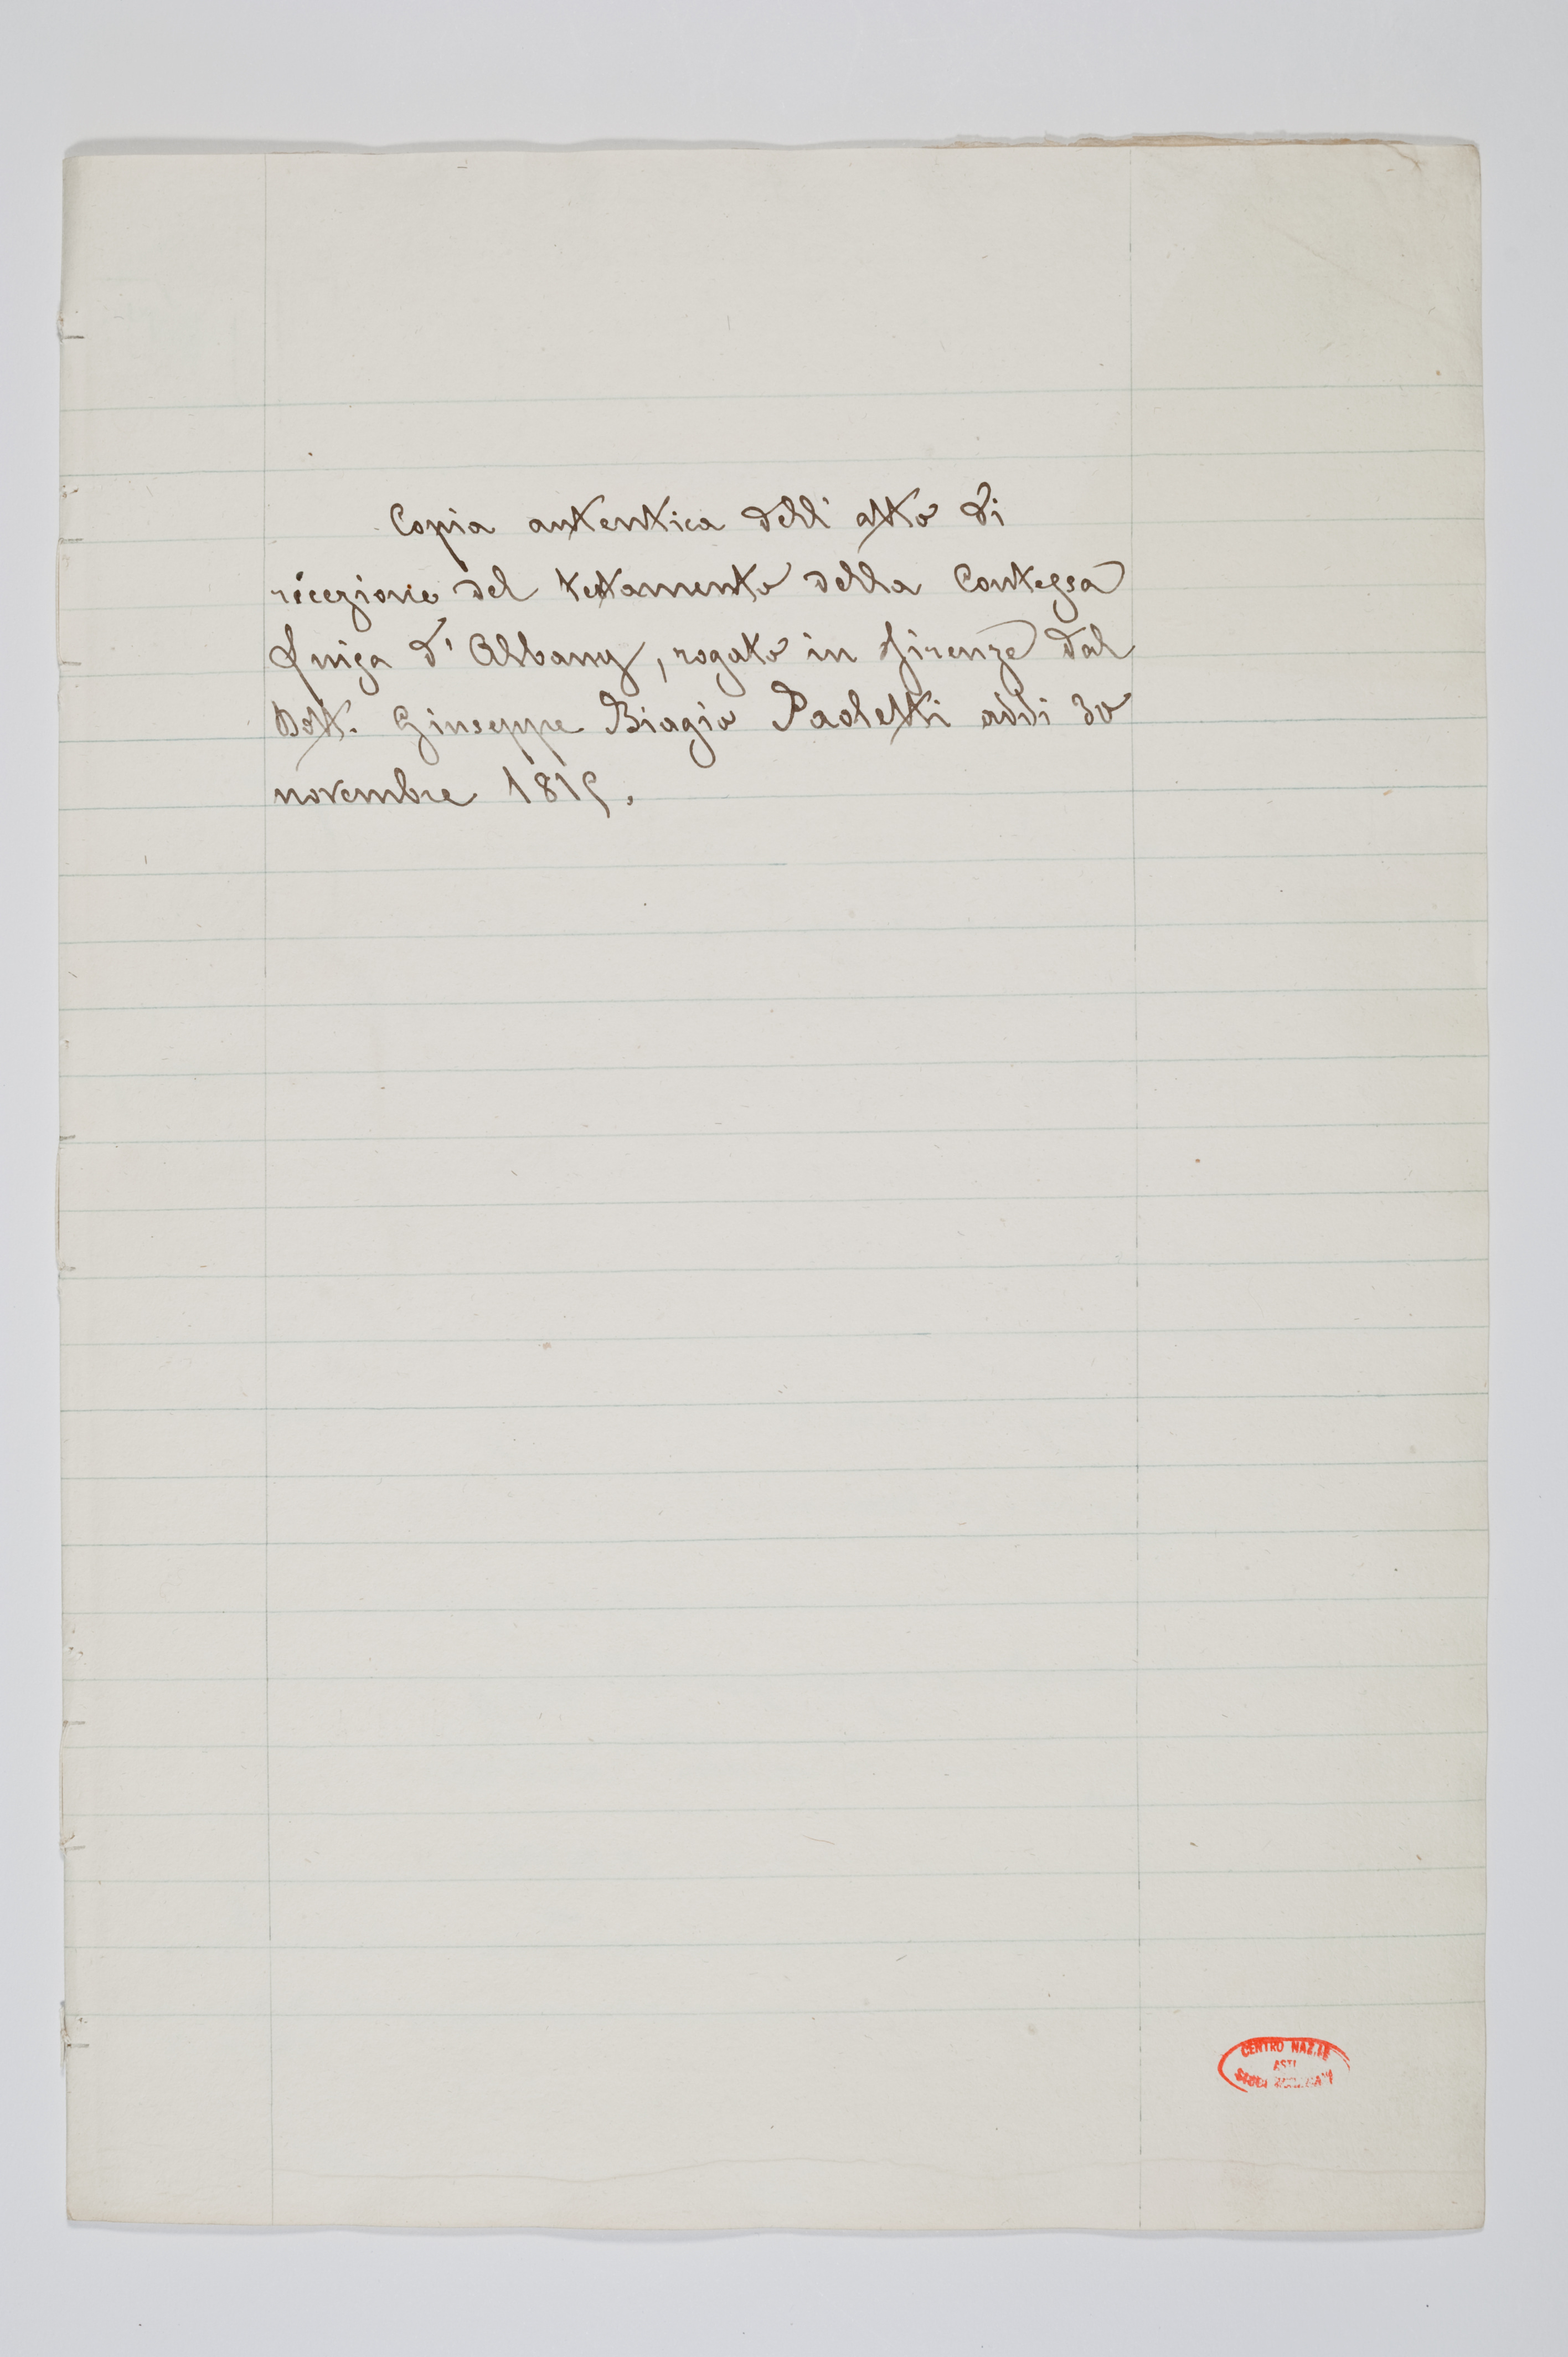 Copia autentica dell' atto di
ricezione del testamento della Contessa
Luisa d' Albany, rogato in Firenze dal
Dott. Giuseppe Biagio Paoletti addi 30
novembre 1819.
CENTRO NAZ.LE
ASTI
STUDI